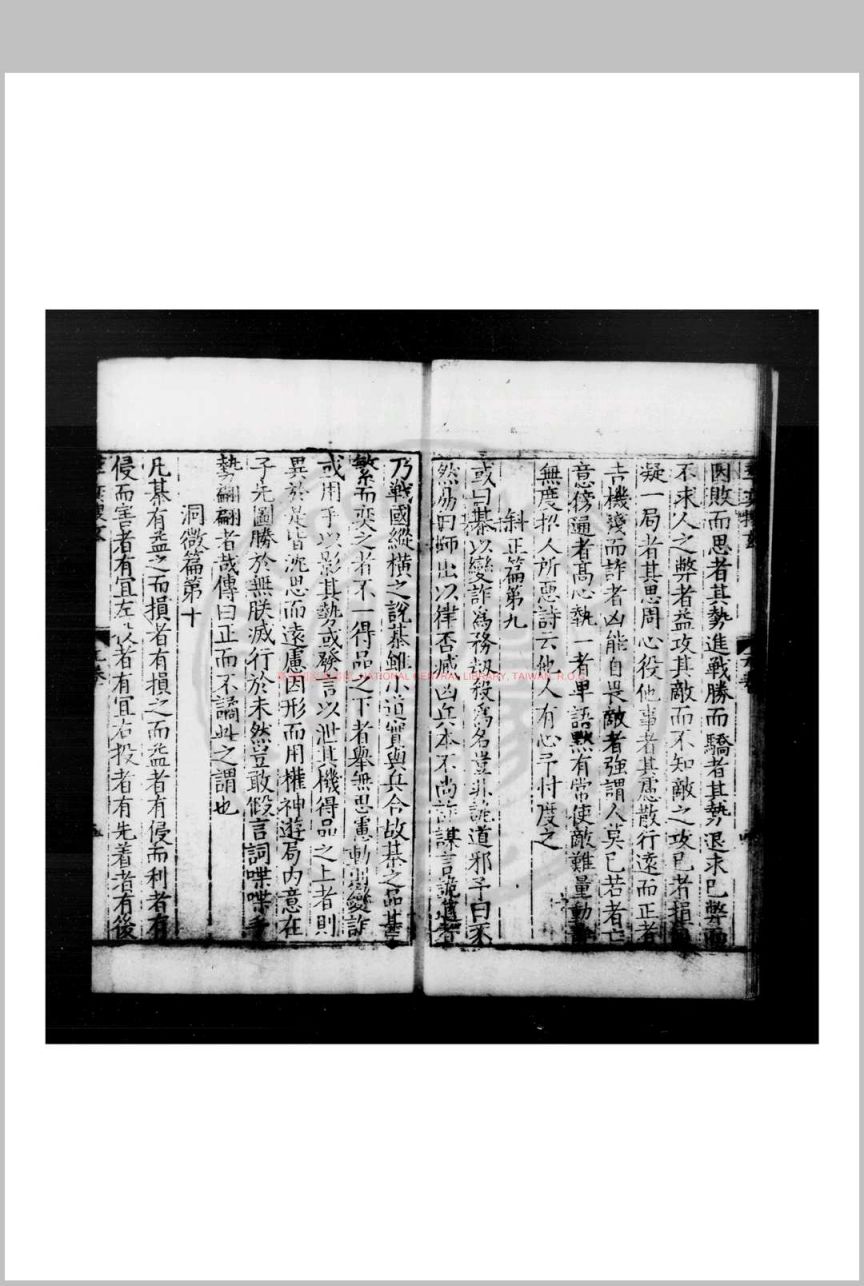 因敗而思者其勢進戰勝而驕者其勢退求已弊而
不求人之弊者益攻其敵而不知敵之攻已者損
凝一局者其思周心役他事者其慮散行遠而正者
吉機淺而詐者凶能自畏敵者強謂人莫已若者亡
意傍通者高心執一者卑語黙有常使敵難量動
無度招人所惡詩云他人有心予忖度之
斜正篇第九
或曰棊以變詐爲務刼殺爲名豈非詭道邪予曰不
然易曰師出以律否臧凶兵本不尚詐謀言詭道者
乃戰國縱橫之說棊雖小道實與兵合故棊之品甚
繁而奕之者不一得品之下者舉無思慮動則變詐
或用手以影其勢或發言以泄其機得品之上者則
異於是皆沈思而遠慮因形而用權神遊局內意在
子先圖勝於無朕滅行於未然豈敢假言詞喋喋手
勢翩翩者哉傳曰正而不譎此之謂也
洞微篇第十
凡棊有益之而損者有損之而益者有侵而利者有
侵而害者有宜左投者有宜右投者有先着者有後
NATIONAL CENTRAL LIBRARY, TAIWAN, R.O.C